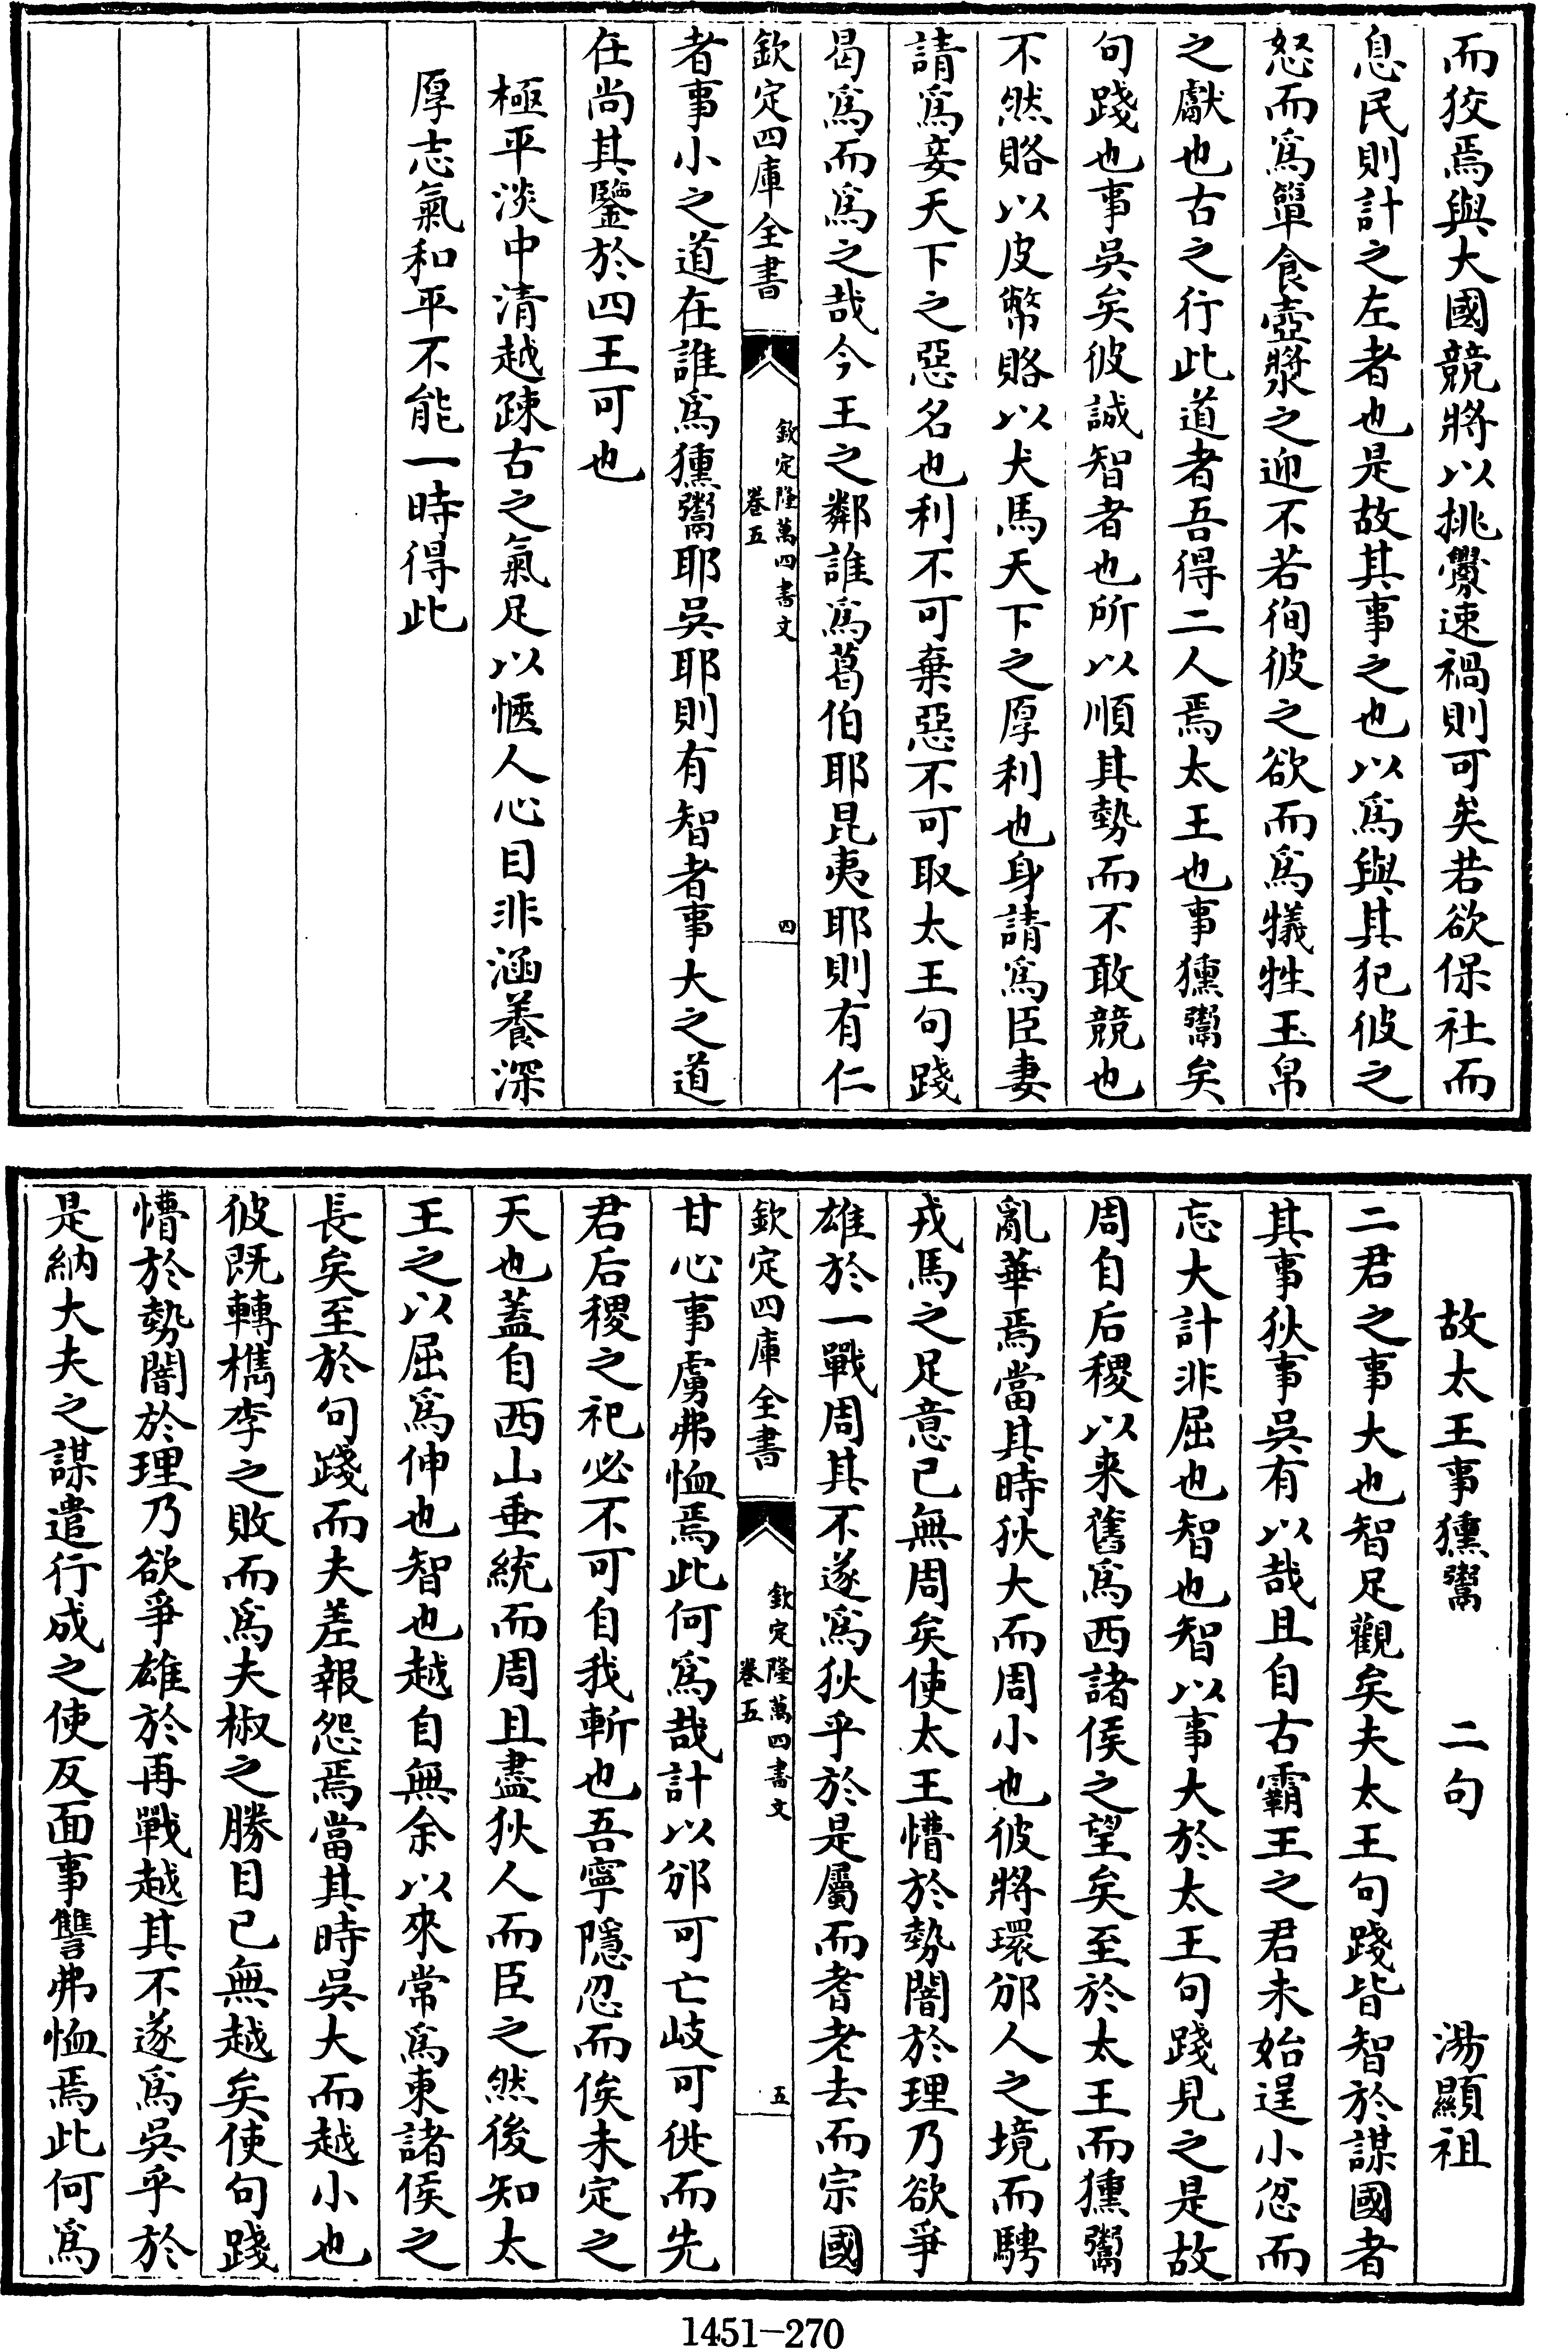 而狡焉與大國競將以挑釁速禍則可矣若欲保社而
息民則計之左者也是故其事之也以為與其犯彼之
怒而為簞食壺漿之迎不若徇彼之欲而為犧牲玉帛
之獻也古之行此道者吾得二人焉太王也事獯鬻矣
句踐也事吳矣彼誠智者也所以順其勢而不敢競也
不然賂以皮幣賂以犬馬天下之厚利也身請為臣妻
請為妾天下之惡名也利不可棄惡不可取太王句踐
曷為而為之哉今王之鄰誰為葛伯耶昆夷耶則有仁
欽定四庫全書
欽定隆萬四書文
卷五
四
者事小之道在誰為獯鬻耶吳耶則有智者事大之道
在尚其鑒於四王可也
極平淡中清越疎古之氣足以愜人心目非涵養深
厚志氣和平不能一時得此
故太王事獯鬻 二句 湯顯祖
二君之事大也智足觀矣夫太王句踐皆智於謀國者
其事狄事吳有以哉且自古霸王之君未始逞小忿而
忘大計非屈也智也智以事大於太王句踐見之是故
周自后稷以来舊為西諸侯之望矣至於太王而獯鬻
亂華焉當其時狄大而周小也彼將環邠人之境而騁
戎馬之足意已無周矣使太王懵於勢闇於理乃欲爭
雄於一戰周其不遂為狄乎於是屬而耆老去而宗國
欽定四庫全書
欽定隆萬四書文
卷五
五
甘心事虜弗恤焉此何為哉計以邠可亡岐可徙而先
君后稷之祀必不可自我斬也吾寧隱忍而俟未定之
天也蓋自西山垂統而周且盡狄人而臣之然後知太
王之以屈為伸也智也越自無余以來常為東諸侯之
長矣至於句踐而夫差報怨焉當其時吳大而越小也
彼既轉檇李之敗而為夫椒之勝目已無越矣使句踐
懵於勢闇於理乃欲爭雄於再戰越其不遂為吳乎於
是納大夫之謀遣行成之使反面事讐弗恤焉此何為
1451-270